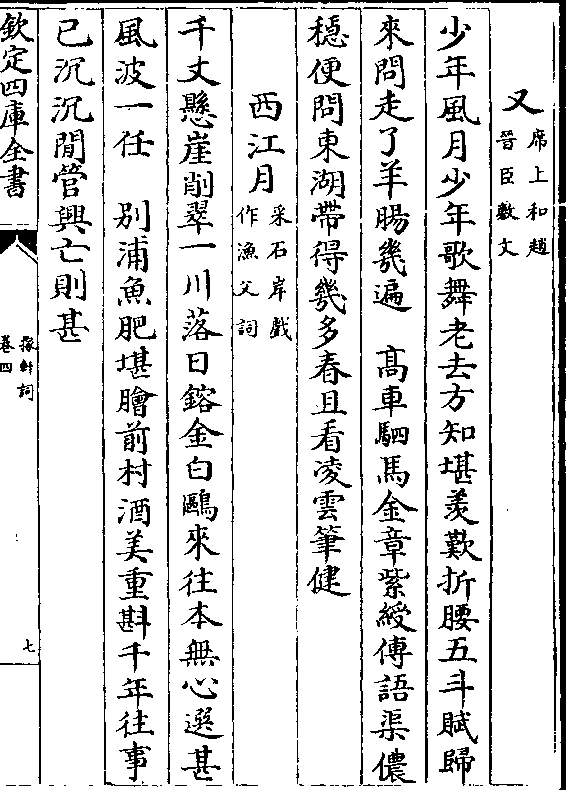 又席上和趙
晉臣敷文
少年風月少年歌舞老去方知堪羨歎折腰五斗賦歸
來問走了羊腸幾遍　高車駟馬金章紫綬傳語渠儂
穏便問東湖帶得幾多春且看凌雲筆健
西江月采石岸戲
作漁父詞
千丈懸崖削翠一川落日鎔金白鷗來往本無心選甚
風波一任　别浦魚肥堪膾前村酒美重斟千年往事
已沉沉閒管興亡則甚
欽定四庫全書
稼軒詞
卷四
七